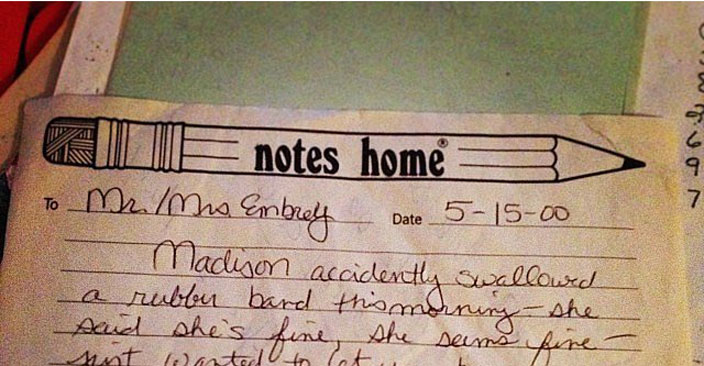 notes home®
To Mr./Mrs Embrey Date 5-15-00
Madison accidently swallowed
a rubber band this morning - she
said she's fine, she seems fine -
just wanted to let
6
9
7